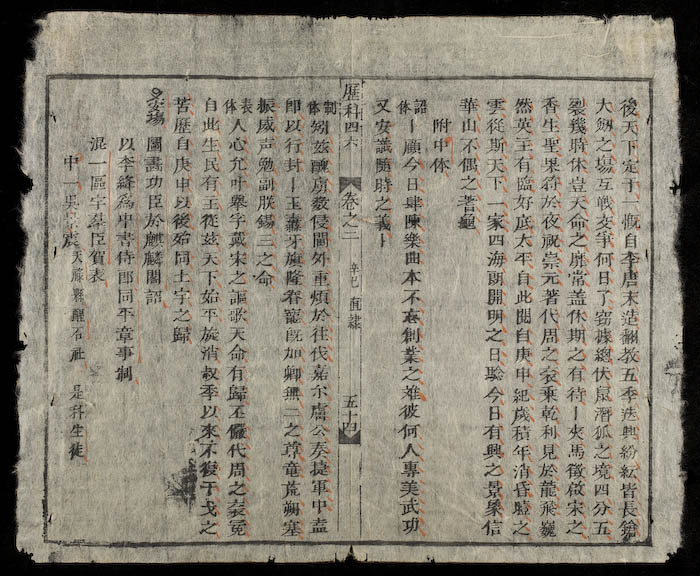 後天下定于一慨自李唐末造翻教五季迭興紛紜皆長鎗
大劔之場互戰交爭何日了竊據總伏𧱓潛狐之境四分五
裂幾時休豈天命之靡常盖休期之有待丨夾馬徵啟宋之
香生聖果符於夜祝崇元著代周之衮乘乾利見於龍飛巍
然英主有臨好底大平自此開自庚申紀歲積年消昏曀之
雲從斯天下一家四海朗開明之日驗今日有興之景象信
華山不偶之著龜
附中休
詔体丨願今日肆陳樂曲本不忘創業之難彼何人專美武功
又安識隨時之義丨
歷科四六
卷之三
辛巳
直隸
五十四
制体矧茲醜虜敎侵閫外重煩於往伐嘉尒膚公奏捷軍中盍
即以行封丨玉纛牙旗隆眷寵旣加卿無二之尊竜荒朔塞
振威声勉副朕錫三之命
表体人心允叶舉字戴宋之謳歌天命有歸丕儼代周之裘冕
自此生民有主從茲天下始平旋消叔季以來不復干戈之
苦歷自庚申以後始同土宇之歸
圖畵功臣於麒麟閣詔
以李絳爲中書侍郎同平章事制
混一區宇羣臣賀表
中一 天 縣醒石社 是科生徒